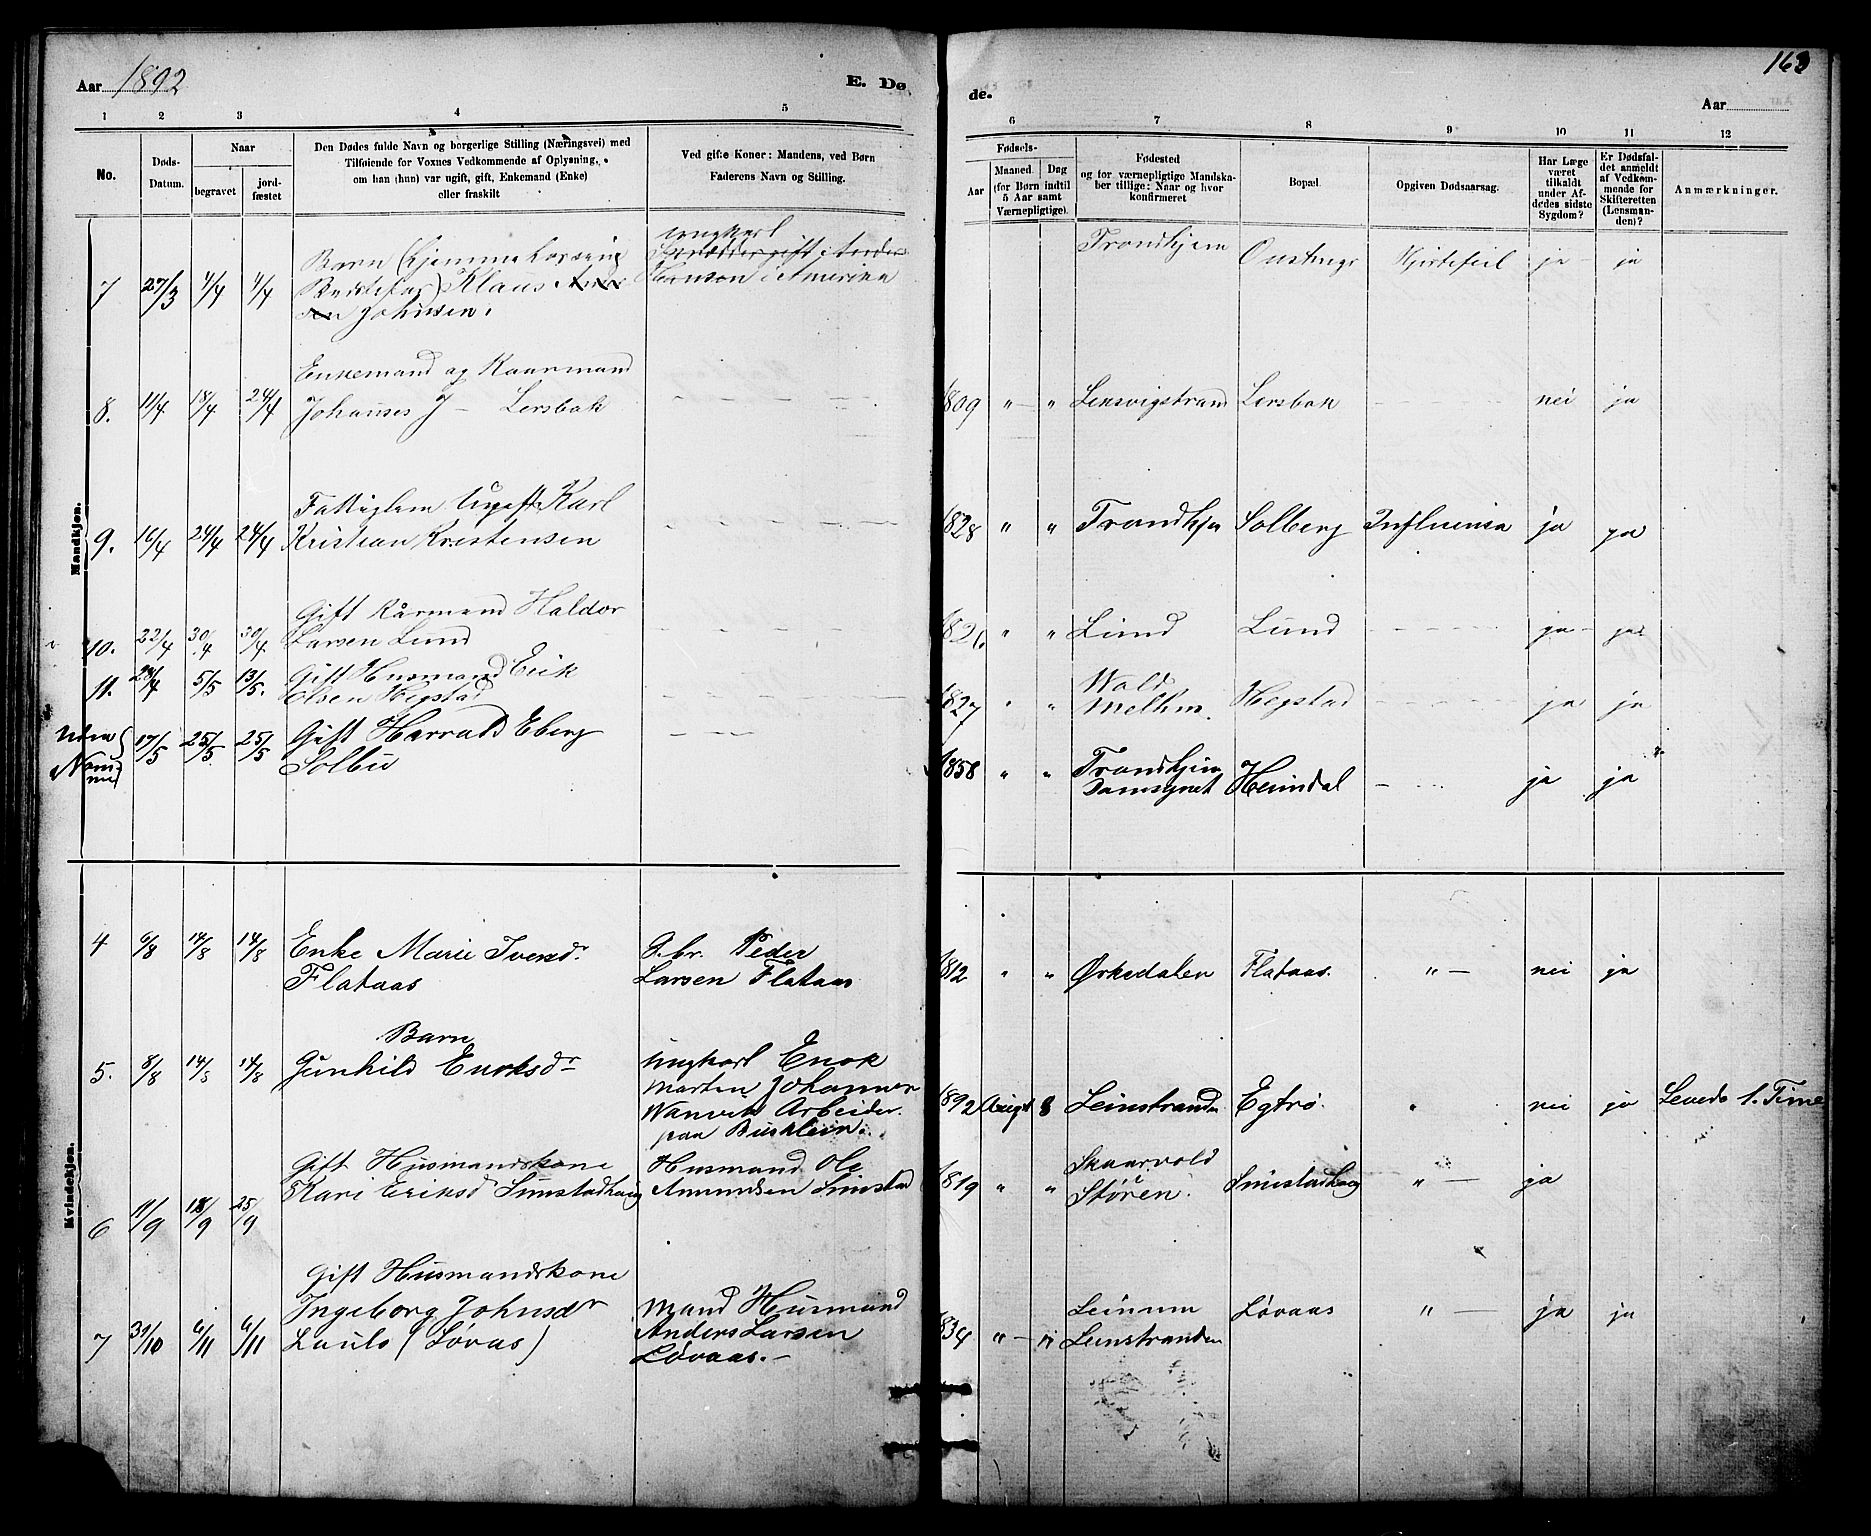 Aar 1892
E. Dø
de.
163
Aar
1 2 3 4 5 6 7 8 9 10 11 12
No.
Døds-
Datum.
Naar
begravet
jord-
fæstet
Den Dødes fulde Navn og borgerlige Stilling (Næringsvei) med
Tilføiende for Voxnes Vedkommende af Oplysning,
om han (hun) var ugift, gift, Enkemand (Enke)
eller fraskilt
Ved gifte Koner: Mandens, ved Børn
Faderens Navn og Stilling.
Fødsels-
Aar
Maaned.
Dag
(for Børn indtil
5 Aar samt
Værnepligtige).
Fødested
og for værnepligtige Mandska-
ber tillige: Naar og hvor
konfirmeret
Bopæl.
Opgiven Dødsaarsag.
Har Læge
været
tilkaldt
under Af-
dødes sidste
Sygdom?
Er Dødsfal-
det anmeldt
af Vedkom-
mende for
Skifteretten
(Lensman-
den)?
Anmærkninger.
Mandkjøn.
7 27/3 4/4 4/4
Barn (hjemme hos sin
Bedstefar) Klaus
Johnsen.
ungkarl
Hanson i Amerika
Trondhjem Hjertefeil ja ja
8. 11/4 18/4 24/4
Enkemand og Kaarmand
Johannes J - Lersbak
1809 " " Lensvigstrand Lersbak nei ja
9. 16/4 24/4 24/4
Fattiglem Ugift Karl
Kristian Kristensen
1828 " " Trondhjm Solberg Influensa ja ja
10. 22/4 30/4 30/4
Gift Kårmand Haldor
Larsen Lund
182 " " Lund Lund ja ja
11. 28/4 5/5 13/5.
Gift Husmand Erik
Olsen Hegstad
1827 " " Wold
Melhus. Hegstad ja ja
Uden
Nummer
17/5 25/5 25/5
Gift Harrald Eberg
Solbu
1858 " " Trondhjem
Domsognet Heimdal ja ja
Kvindekjøn.
4 6/8 14/8 14/8
Enke Marie Iversdr
Flataas
G.br. Peder
Larsen Flataas
1812 " " Ørkedalen Flataas. " nei ja
5. 8/8 14/8 14/8
Barn
Gunhild Enoksdr
Ungkarl Enok
Morten Johannes
Wanvik Arbeider
paa Busklein.
1892 August 8 Leinstranden Egtrø. " nei ja Levede 1. Time
6 11/9 18/9 25/9
Gift Husmandskone
Kari Eriksd Simstadhaug
Husmand Ole
Amundsen Simstad
1819 " " Skaarvold
Støren. Simstadhaug " ja
7 31/10 6/11 6/11
Gift Husmandskone
Ingeborg Johnsdr
Laulo (Løvas)
Mand Husmand
Anders Larsen
Løvaas.
1834 " " Leinum
Leinstranden Løvaas " ja ja